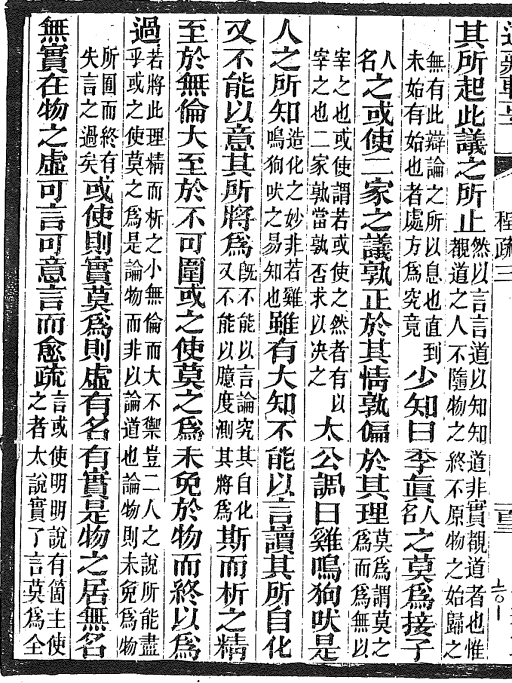 程疏三
其所起此議之所止
然以言言道以知知道非實覩道者也惟
覩道之人不隨物之終不原物之始歸之
無有此辯論之所以息也直到
未始有始也者處方爲究竟
少知曰季眞
人名
之莫爲接子
人名
之或使二家之議孰正於其情孰偏於其理
莫爲謂莫之
爲而爲無以
宰之也或使謂若或使之然者有以
宰之也二家孰當孰否求以决之
太公調曰雞鳴狗吠是
人之所知
造化之妙非若雞
鳴狗吠之易知也
雖有大知不能以言讀其所自化
又不能以意其所將爲
旣不能以言論究其自化
又不能以臆度測其將爲
斯而析之精
至於無倫大至於不可圍或之使莫之爲未免於物而終以爲
過
若將此理精而析之小無倫而大不禦豈二人之說所能盡
乎或之使莫之爲是論物而非以論道也論物則未免爲物
所囿而終有
失言之過矣
或使則實莫爲則虛有名有實是物之居無名
無實在物之虛可言可意言而愈疏
言或使明明說有箇主使
之者太說實了言莫爲全